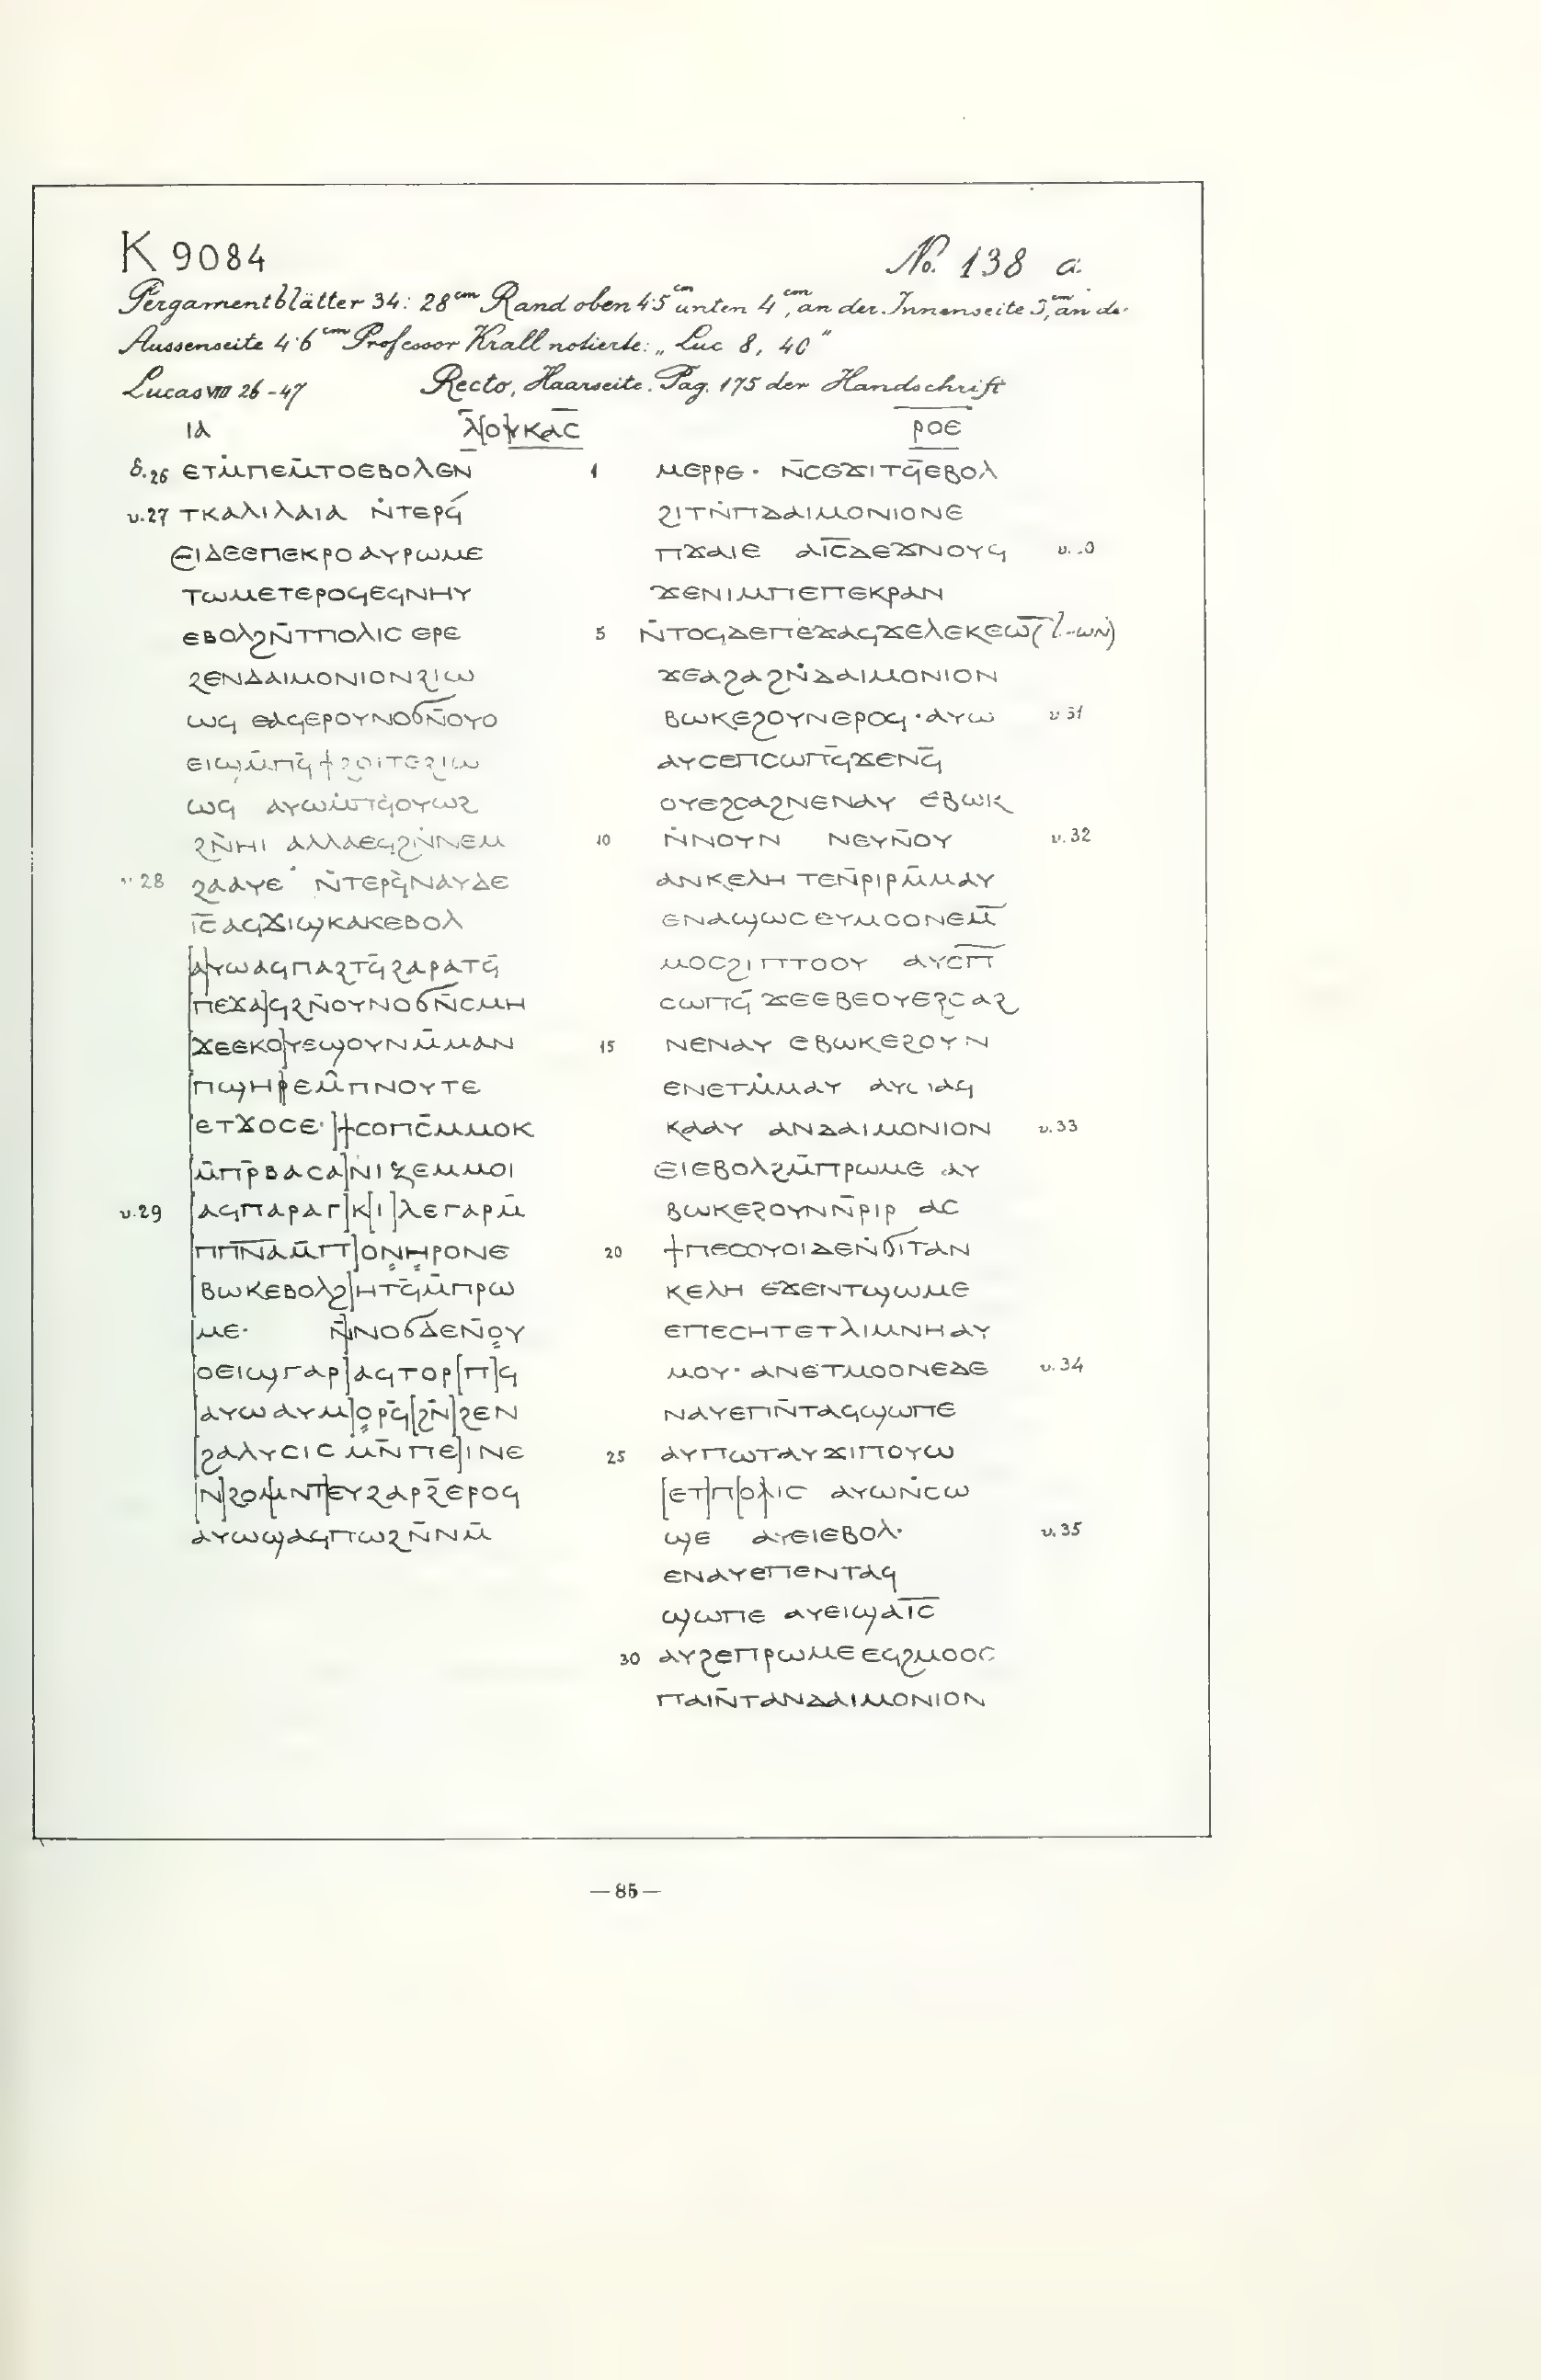 K 9084 No. 138 a.
Pergamentblätter 34: 28 cm Rand oben 4·5 cm unten 4 cm, an der Innenseite 3 cm, an de
Aussenseite 4·6 cm Professor Krall notierte: „Luc 8, 40"
Lucas VIII 26-47 Recto, Haarseite. Pag. 175 der Handschrift
ⲓⲁ ⲗ̅[ⲟ]ⲩⲕⲁⲥ̅ ⲣⲟⲉ
8.26 ⲉⲧⲙ̇ⲡⲉⲙ̅ⲧⲟⲉⲃⲟⲗⲉⲛ
v.27 ⲧⲕⲁⲗⲓⲗⲁⲓⲁ ⲛ̇ⲧⲉⲣϥ́
ⲉⲓⲇⲉⲉⲡⲉⲕⲣⲟ ⲁⲩⲣⲱⲙⲉ
ⲧⲱⲙⲉⲧⲉⲣⲟϥⲉϥⲛⲏⲩ
ⲉⲃⲟⲗϩⲛ̅ⲧⲡⲟⲗⲓⲥ ⲉⲣⲉ
ϩⲉⲛⲇⲁⲓⲙⲟⲛⲓⲟⲛϩⲓⲱ
ⲱϥ ⲉⲁϥⲉⲣⲟⲩⲛⲟϭⲛ̅ⲟⲩⲟ
ⲉⲓϣⲙ̅ⲡϥ̅ϯϩⲟⲓⲧⲉϩⲓⲱ
ⲱϥ ⲁⲩⲱⲙ̇ⲡϥ̀ⲟⲩⲱϩ
ϩⲛ̀ⲏⲓ ⲁⲗⲗⲁⲉϥϩⲛ̇ⲛⲉⲙ
v.28 ϩⲁⲁⲩⲉ· ⲛ̇ⲧⲉⲣϥ̀ⲛⲁⲩⲇⲉ
ⲓ̅ⲥ̅ ⲁϥϫⲓϣⲕⲁⲕⲉⲃⲟⲗ
[ⲁ]ⲩⲱⲁϥⲡⲁϩⲧϥ̅ϩⲁⲣⲁⲧϥ̅
[ⲡⲉϫⲁ]ϥϩⲛ̅ⲟⲩⲛⲟϭⲛ̅ⲥⲙⲏ
[ϫⲉⲉⲕⲟ]ⲩⲉϣⲟⲩⲛⲙ̅ⲙⲁⲛ
[ⲡϣⲏ]ⲣⲉⲙ̅ⲡⲛⲟⲩⲧⲉ
[ⲉⲧϫⲟⲥⲉ·]ϯⲥⲟⲡⲥ̅ⲙⲙⲟⲕ
[ⲙ̅ⲡⲣ̅ⲃⲁⲥⲁ]ⲛⲓⲍⲉⲙⲙⲟⲓ
v.29 [ⲁϥⲡⲁⲣⲁⲅ]ⲕ[ⲓ]ⲗⲉⲅⲁⲣⲙ̅
[ⲡⲡ̅ⲛ̅ⲁ̅ⲙ̅ⲡ]ⲟⲛⲏⲣⲟⲛⲉ
[ⲃⲱⲕⲉⲃⲟⲗϩ]ⲏⲧϥ̅ⲙ̅ⲡⲣⲱ
[ⲙⲉ· ⲛ̅]ⲛⲟϭⲇⲉⲛ̅ⲟⲩ
[ⲟⲉⲓϣⲅⲁⲣ]ⲁϥⲧⲟⲣ[ⲡ]ϥ
[ⲁⲩⲱⲁⲩⲙ]ⲟⲣϥ̅[ϩⲛ̅]ϩⲉⲛ
[ϩⲁⲗⲩⲥⲓⲥ ⲙⲛ̅ⲡⲉ]ⲓⲛⲉ
[ⲛ]ϩⲟⲙⲛⲧ]ⲉⲩϩⲁⲣϩ̅ⲉⲣⲟϥ
ⲁⲩⲱϣⲁϥⲡⲱϩⲛ̅ⲛⲙ̅
1 ⲙⲉⲣⲣⲉ· ⲛ̅ⲥⲉϫⲓⲧϥ̅ⲉⲃⲟⲗ
ϩⲓⲧⲛ̇ⲡⲇⲁⲓⲙⲟⲛⲓⲟⲛⲉ
ⲡϫⲁⲓⲉ ⲁⲓ̅ⲥ̅ⲇⲉϫⲛⲟⲩϥ
ϫⲉⲛⲓⲙⲡⲉⲡⲉⲕⲣⲁⲛ
5 ⲛ̅ⲧⲟϥⲇⲉⲡⲉϫⲁϥϫⲉⲗⲉⲕⲉⲱ̅(l.-ⲱⲛ)
ϫⲉⲁϩⲁϩⲛ̇ⲇⲁⲓⲙⲟⲛⲓⲟⲛ
ⲃⲱⲕⲉϩⲟⲩⲛⲉⲣⲟϥ·ⲁⲩⲱ v 31
ⲁⲩⲥⲉⲡⲥⲱⲡϥ̅ϫⲉⲛϥ̅
ⲟⲩⲉϩⲥⲁϩⲛⲉⲛⲁⲩ ⲉⲃⲱⲕ
10 ⲛ̇ⲛⲟⲩⲛ ⲛⲉⲩⲛ̅ⲟⲩ v.32
ⲁⲛⲕⲉⲗⲏ ⲧⲉⲛ̅ⲣⲓⲣⲙ̅ⲙⲁⲩ
ⲉⲛⲁϣⲱⲥ ⲉⲩⲙⲟⲟⲛⲉⲙ̅
ⲙⲟⲥϩⲓⲡⲧⲟⲟⲩ ⲁⲩⲥⲡ̅
ⲥⲱⲡϥ̅ ϫⲉⲉⲃⲉⲟⲩⲉϩⲥⲁϩ
15 ⲛⲉⲛⲁⲩ ⲉⲃⲱⲕⲉϩⲟⲩⲛ
ⲉⲛⲉⲧⲙ̇ⲙⲁⲩ ⲁⲩⲱⲁϥ
ⲕⲁⲁⲩ ⲁⲛⲇⲁⲓⲙⲟⲛⲓⲟⲛ v.33
ⲉⲓⲉⲃⲟⲗϩⲙ̅ⲡⲣⲱⲙⲉ ⲁⲩ
ⲃⲱⲕⲉϩⲟⲩⲛⲛ̅ⲣⲓⲣ ⲁⲥ
20 ϯⲡⲉⲥⲟⲩⲟⲓⲇⲉⲛ̇ϭⲓⲧⲁⲛ
ⲕⲉⲗⲏ ⲉϫⲉⲛⲧϣⲱⲙⲉ
ⲉⲡⲉⲥⲏⲧⲉⲧⲗⲓⲙⲛⲏⲁⲩ
ⲙⲟⲩ· ⲁⲛⲉⲧⲙⲟⲟⲛⲉⲇⲉ v.34
ⲛⲁⲩⲉⲡⲛ̅ⲧⲁϥϣⲱⲡⲉ
25 ⲁⲩⲡⲱⲧⲁⲩϫⲓⲡⲟⲩⲱ
[ⲉⲧ]ⲡ[ⲟⲗ]ⲓⲥ ⲁⲩⲱⲛ̇ⲥⲱ
ϣⲉ ⲁⲩⲉⲓⲉⲃⲟⲗ· v.35
ⲉⲛⲁⲩⲉⲡⲉⲛⲧⲁϥ
ϣⲱⲡⲉ ⲁⲩⲉⲓϣⲁⲓ̅ⲥ̅
30 ⲁⲩϩⲉⲡⲣⲱⲙⲉ ⲉϥϩⲙⲟⲟⲥ
ⲡⲁⲓⲛ̅ⲧⲁⲛⲇⲁⲓⲙⲟⲛⲓⲟⲛ
—85—